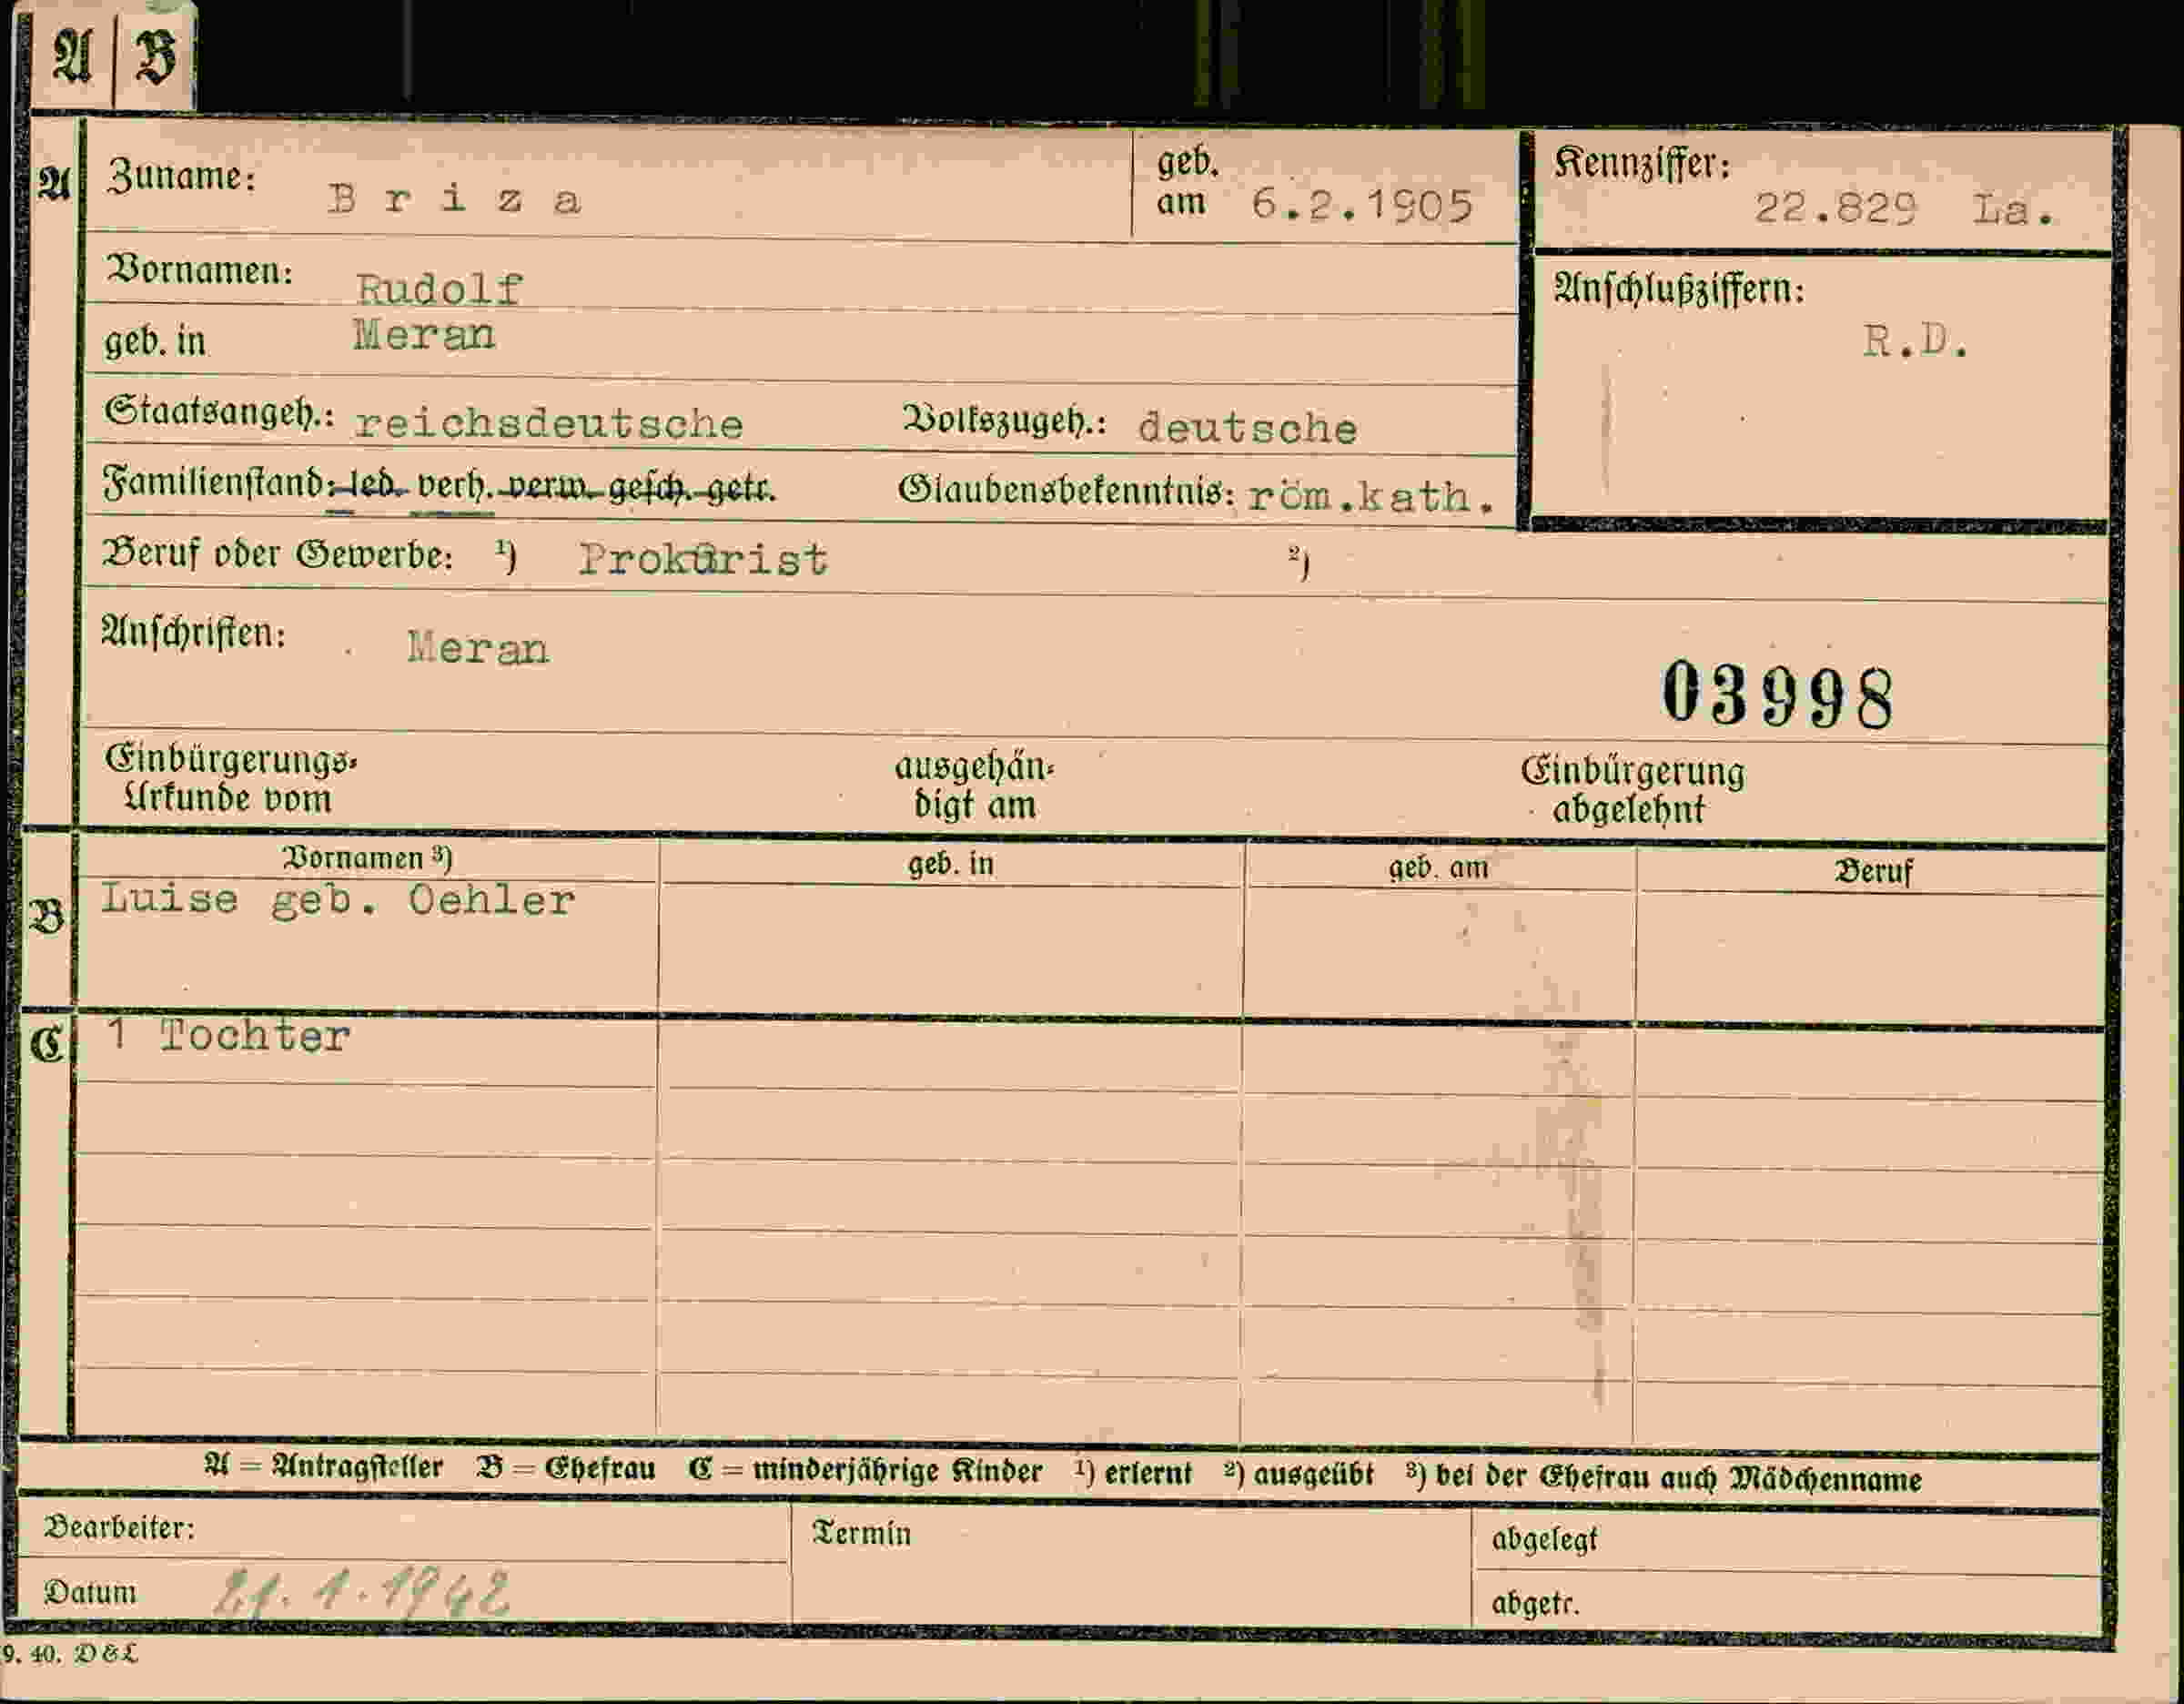 A B
A Zuname: Briza geb. am 6.2.1905 Kennziffer: 22.829 La.
Vornamen: Rudolf
Anschlußziffern: R.D.
geb. in Meran
Staatsangeh.: reichsdeutsche Volkszugeh.: deutsche
Familienstand: led. verh. verw. gesch. getr. Glaubensbekenntnis: röm.kath.
Beruf oder Gewerbe: ¹) Prokurist ²)
Anschriften: Meran
03998
Einbürgerungs-
Urkunde vom
ausgehän-
digt am
Einbürgerung
abgelehnt
Vornamen ³) geb. in geb. am Beruf
B Luise geb. Oehler
C 1 Tochter
A = Antragsteller B = Ehefrau C = minderjährige Kinder ¹) erlernt ²) ausgeübt ³) bei der Ehefrau auch Mädchenname
Bearbeiter: Termin abgelegt
Datum 21.1.1942 abgetr.
9. 40. D&L